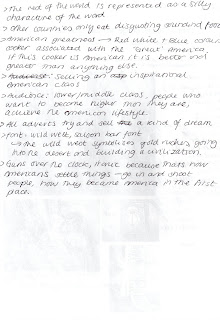 > The rest of the world is represented as a silly
charicature of the world
> Other countries only eat disgusting ground food
> American greatness → Red white + Blue colour
cooker associated with the 'Great' America,
if this cooker is American it is better and
greater than anything else.
> Audience: Selling an inspirational
American class
> Audience: lower/middle class, people who
want to become higher than they are,
achieve the american lifestyle
> All adverts try and sell a kind of dream
> font: wild west, saloon bar font
→ the wild west symbolises gold rushers, going
into the desert and building a civilization.
> Guns over the clock, it because thats how
Americans settle things - go in and shoot
people, how they became america in the first
place.